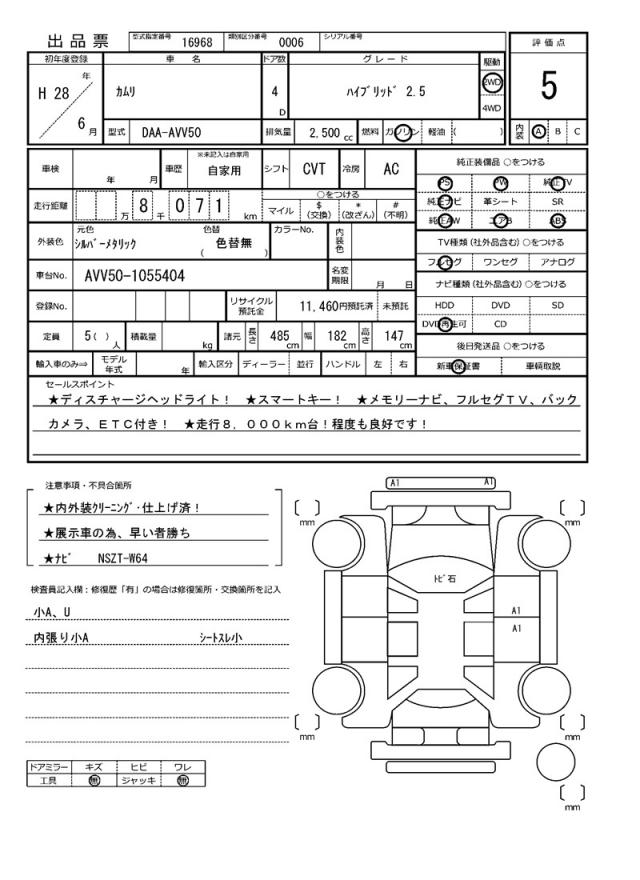 出品票 型式指定番号 16968 類別区分番号 0006 シリアル番号
評価点
5
初年度登録 車名 ドア数 グレード 駆動
H 28 年 6 月 カムリ 4 D ハイブリッド 2.5 2WD 4WD
型式 DAA-AVV50 排気量 2,500 cc 燃料 ガソリン 軽油 ( )
内装 A B C
車検 年 月 車歴 ※未記入は自家用 自家用 シフト CVT 冷房 AC
純正装備品 ○をつける
PS PW 純正TV
純正ナビ 革シート SR
純正AW エアB ABS
走行距離 万 8 千 0 7 1 km
○をつける
マイル $(交換) *(改ざん) #(不明)
外装色 元色 シルバーメタリック 色替 ( 色替無 ) カラーNo. 内装色
TV種類 (社外品含む) ○をつける
フルセグ ワンセグ アナログ
車台No. AVV50-1055404 名変期限 月 日
ナビ種類 (社外品含む) ○をつける
HDD DVD SD
DVD再生可 CD
登録No. リサイクル預託金 11,460円預託済 未預託
定員 5( )人 積載量 kg 諸元 長さ 485cm 幅 182cm 高さ 147cm
後日発送品 ○をつける
新車保証書 車輌取説
輸入車のみ⇒ モデル年式 年 輸入区分 ディーラー 並行 ハンドル 左 右
セールスポイント
★ディスチャージヘッドライト! ★スマートキー! ★メモリーナビ、フルセグTV、バック
カメラ、ETC付き! ★走行8,000km台!程度も良好です!
注意事項・不具合箇所
★内外装クリーニング・仕上げ済!
★展示車の為、早い者勝ち
★ナビ NSZT-W64
検査員記入欄:修復歴「有」の場合は修復箇所・交換箇所を記入
小A、U
内張り小A シートスレ小
ドアミラー キズ ヒビ ワレ
工具 無 ジャッキ 無
A1 A1
[ ] mm [ ] mm
トビ石
A1
A1
[ ] mm [ ] mm
[ ] mm